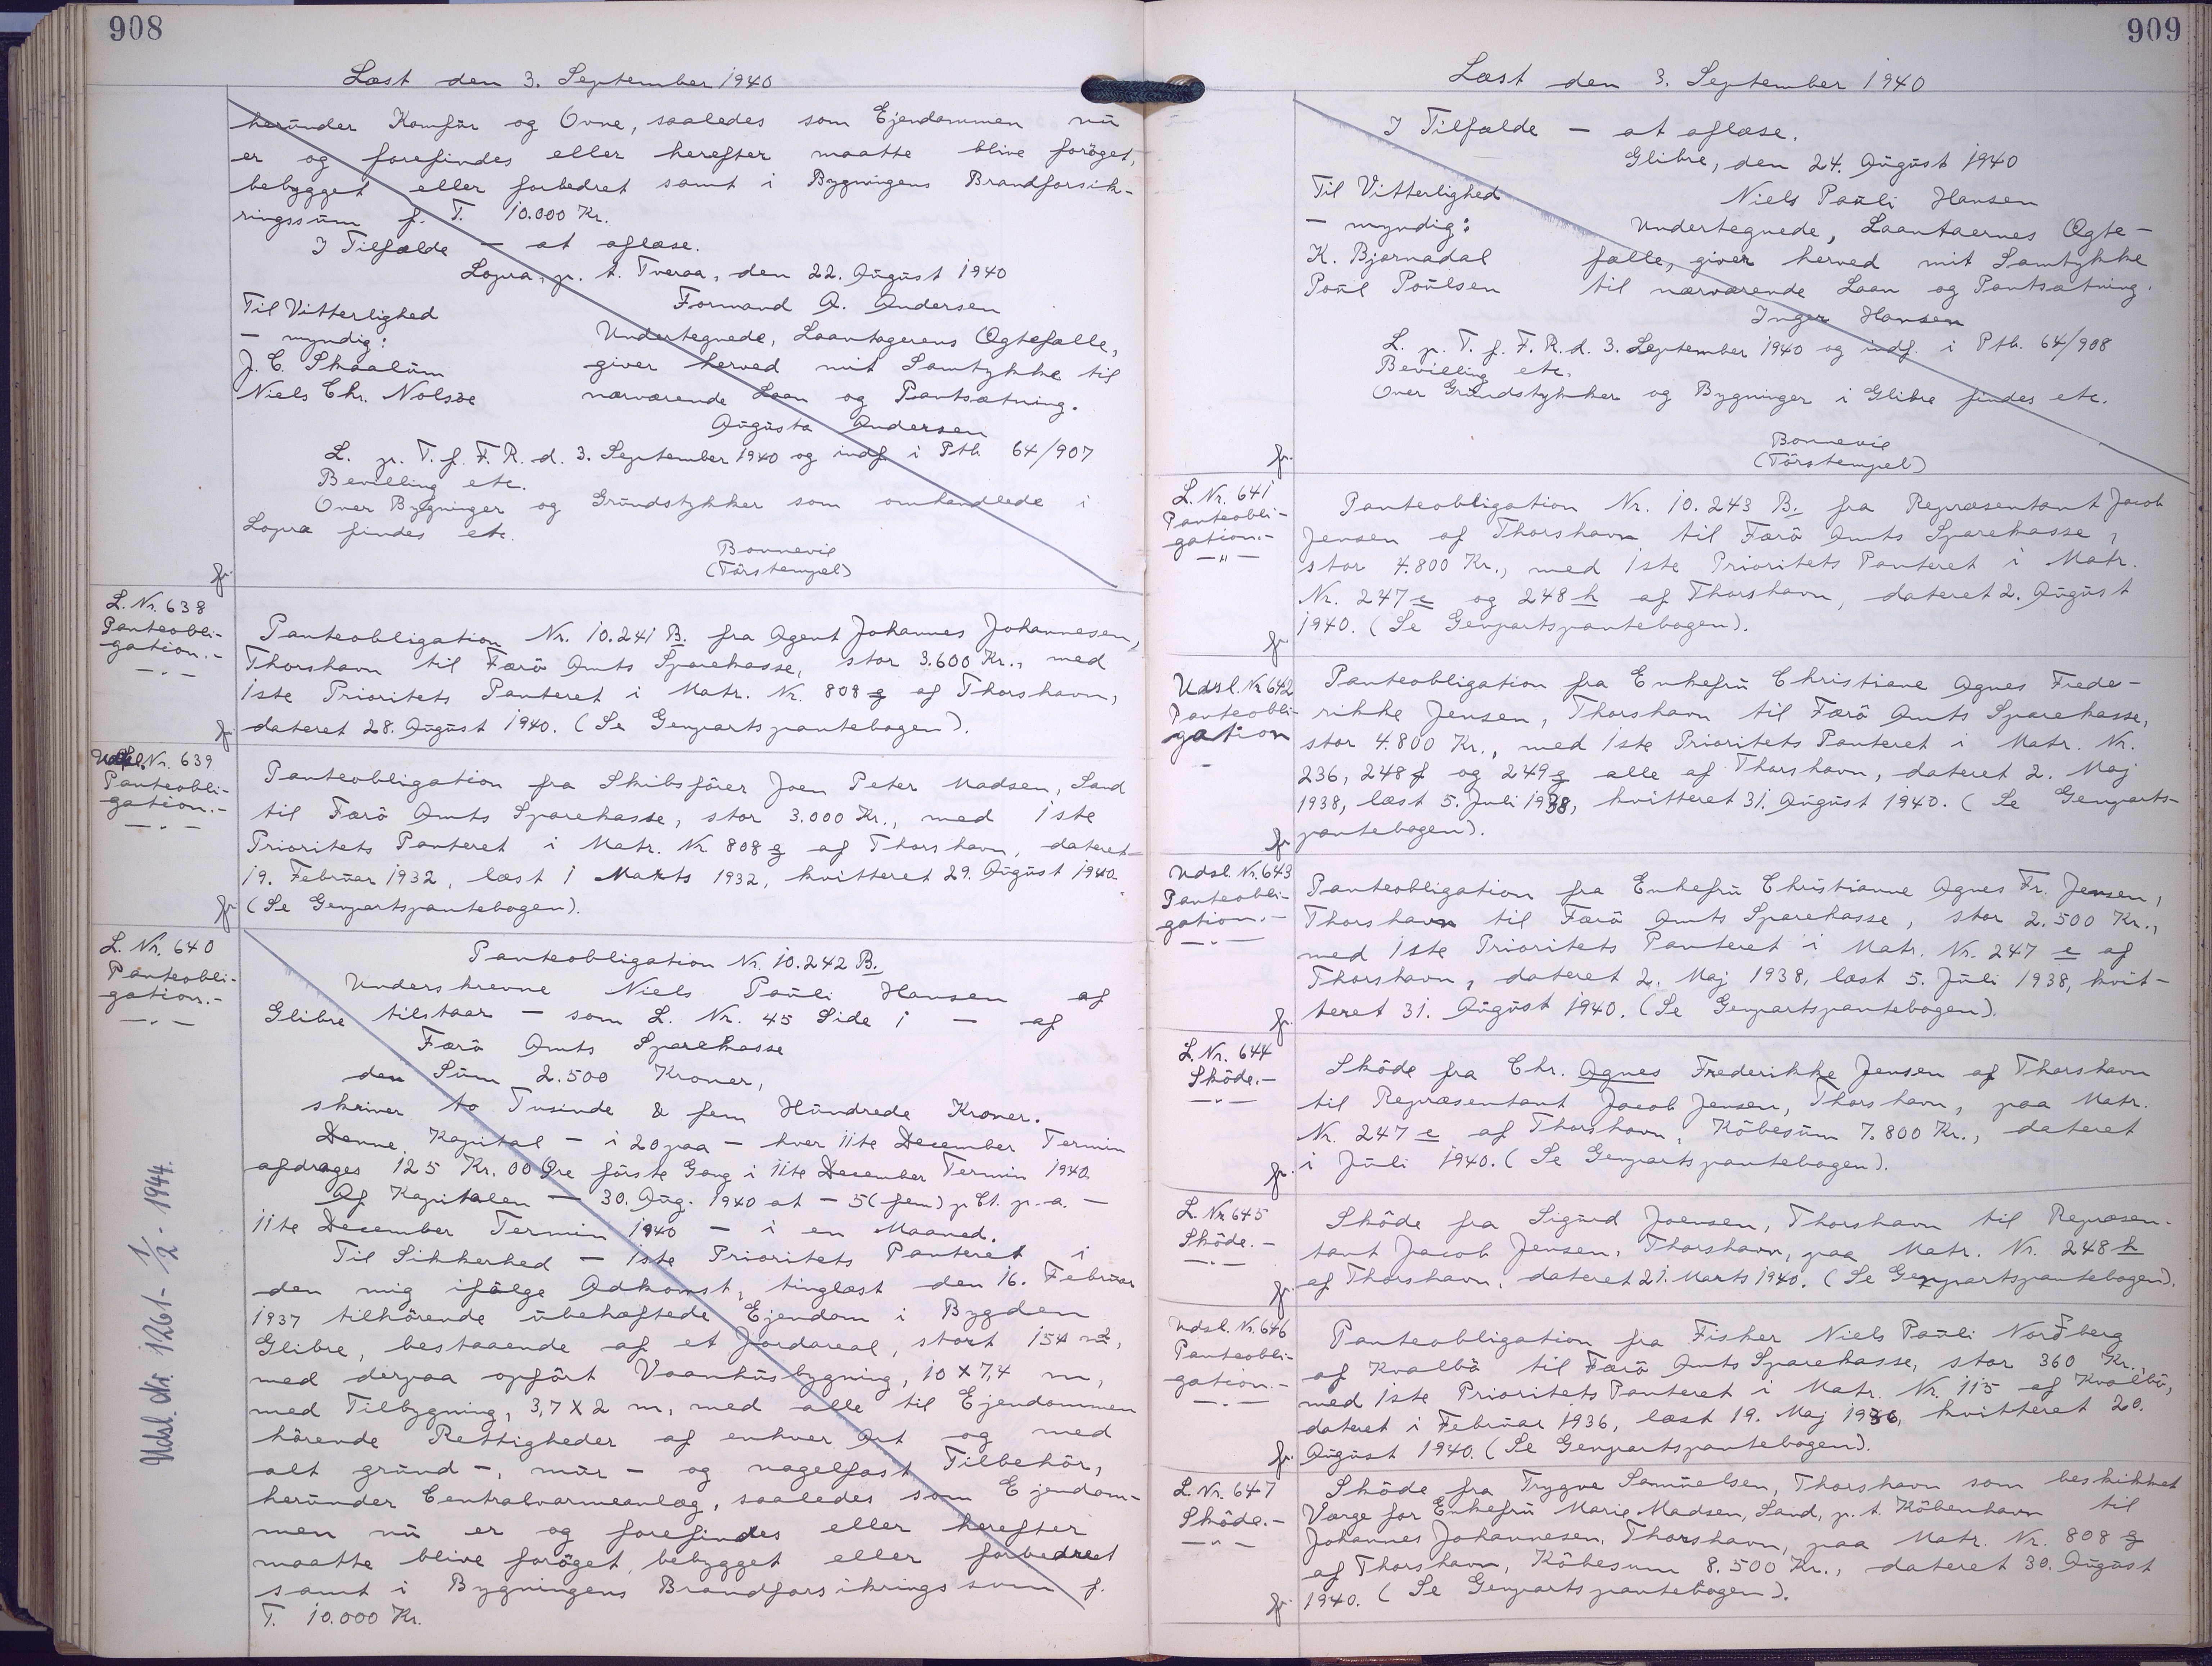 908
Læst den 3. September 1940
herunder Komfür og Ovne, saaledes som Ejendommen nu
er og forefindes eller herefter maatte blive forøget,
bebygget eller forbedret samt i Bygningens Brandforsik-
ringssum f. T. 10.000 Kr.
I Tilfælde - at aflæse.
Lopra, p. t. Tveraa, den 22. August 1940
Til Vitterlighed
Formand A. Andersen
- myndig:
Undertegnede, Laantagerens Ægtefælle,
J. C. Skaalum
giver herved mit Samtykke til
Niels Chr. Nolsøe
nærværende Laan og Pantsætning.
Augusta Andersen
L. p. T. f. F. R. d. 3. September 1940 og indf. i Ptb. 64/907
Bevilling etc.
Over Bygninger og Grundstykker som omhandlede i
Lopra findes etc.
Bonnevie
(Törstempel)
fr.
L. Nr. 638
Panteobli-
gation.-
- " -
Panteobligation Nr. 10.241 B. fra Agent Johannes Johannesen,
Thorshavn til Færö Amts Sparekasse, stor 3.600 Kr., med
1ste Prioritets Panteret i Matr. Nr. 808 g af Thorshavn,
dateret 28. August 1940. (Se Genpartspantebogen).
fr.
Udsl. Nr. 639
Panteobli-
gation.-
- " -
Panteobligation fra Skibsförer Joen Peter Madsen, Sand
til Færö Amts Sparekasse, stor 3.000 Kr., med 1ste
Prioritets Panteret i Matr. Nr. 808 g af Thorshavn, dateret
19. Februar 1932, læst 1 Marts 1932, kvitteret 29. August 1940.
(Se Genpartspantebogen).
fr.
L. Nr. 640
Panteobli-
gation.-
- " -
Panteobligation Nr. 10.242 B.
Underskrevne Niels Pauli Hansen af
Glibre tilstaar - som L. Nr. 45 Side 1 - af
Færö Amts Sparekasse
den Sum 2.500 Kroner,
skriver to Tusinde & fem Hundrede Kroner.
Denne Kapital - i 20 paa - hver 11te December Termin
afdrages 125 Kr. 00 Øre förste Gang i 11te December Termin 1940.
Af Kapitalen - 30. Aug. 1940 at - 5 (fem) p Ct. p. a. -
11te December Termin 1940 - i en Maaned.
Til Sikkerhed - 1ste Prioritets Panteret i
den mig ifølge Adkomst, tinglæst den 16. Februar
1937 tilhörende ubehæftede Ejendom i Bygden
Glibre, bestaaende af et Jordareal, stort 154 m²,
med derpaa opfört Vaanhusbygning, 10 X 7,4 m,
med Tilbygning, 3,7 X 2 m, med alle til Ejendommen
hörende Rettigheder af enhver Art og med
alt grund-, mur- og nagelfast Tilbehör,
herunder Centralvarmeanlæg, saaledes som Ejendom-
men nu er og forefindes eller herefter
maatte blive foröget, bebygget eller forbedret
samt i Bygningens Brandforsikringssum f.
T. 10.000 Kr.
Udsl. Nr. 1261 - 1/2 - 1944.
909
Læst den 3. September 1940
I Tilfælde - at aflæse.
Glibre, den 24. August 1940
Til Vitterlighed
Niels Pauli Hansen
- myndig:
Undertegnede, Laantaernes Ægte-
K. Bjarnadal
fælle, giver herved mit Samtykke
Poul Poulsen
til nærværende Laan og Pantsætning.
Inger Hansen
L. p. T. f. F. R. d. 3. September 1940 og indf. i Ptb. 64/908
Bevilling etc.
Over Grundstykker og Bygninger i Glibre findes etc.
Bonnevie
(Törstempel)
fr.
L. Nr. 641
Panteobli-
gation.-
- " -
Panteobligation Nr. 10.243 B. fra Repræsentant Jacob
Jensen af Thorshavn til Færö Amts Sparekasse,
stor 4.800 Kr., med 1ste Prioritets Panteret i Matr.
Nr. 247 e og 248 h af Thorshavn, dateret 2. August
1940. (Se Genpartspantebogen).
fr.
Udsl. Nr. 642
Panteobli-
gation
-
Panteobligation fra Enkefru Christiane Agnes Frede-
rikke Jensen, Thorshavn til Færö Amts Sparekasse,
stor 4.800 Kr., med 1ste Prioritets Panteret i Matr. Nr.
236, 248 f og 249 g alle af Thorshavn, dateret 2. Maj
1938, læst 5. Juli 1938, kvitteret 31. August 1940. (Se Genparts-
pantebogen).
fr.
Udsl. Nr. 643
Panteobli-
gation.-
- " -
Panteobligation fra Enkefru Christianne Agnes Fr. Jensen,
Thorshavn til Færö Amts Sparekasse, stor 2.500 Kr.,
med 1ste Prioritets Panteret i Matr. Nr. 247 e af
Thorshavn, dateret 2. Maj 1938, læst 5. Juli 1938, kvit-
teret 31. August 1940. (Se Genpartspantebogen).
fr.
L. Nr. 644
Sköde.-
- " -
Sköde fra Chr. Agnes Frederikke Jensen af Thorshavn
til Repræsentant Jacob Jensen, Thorshavn, paa Matr.
Nr. 247 e af Thorshavn, Köbesum 7.800 Kr., dateret
i Juli 1940. (Se Genpartspantebogen).
fr.
L. Nr. 645
Sköde.-
- " -
Sköde fra Sigurd Joensen, Thorshavn til Repræsen-
tant Jacob Jensen, Thorshavn, paa Matr. Nr. 248 h
af Thorshavn, dateret 21. Marts 1940. (Se Genpartspantebogen).
fr.
Udsl. Nr. 646
Panteobli-
gation.-
- " -
Panteobligation fra Fisker Niels Pauli Nordberg
af Kvalbö til Færö Amts Sparekasse, stor 360 Kr.,
med 1ste Prioritets Panteret i Matr. Nr. 115 af Kvalbö,
dateret i Februar 1936, læst 19. Maj 1936, kvitteret 20.
August 1940. (Se Genpartspantebogen).
fr.
L. Nr. 647
Sköde.-
- " -
Sköde fra Trygve Samuelsen, Thorshavn som beskikket
Værge for Enkefru Marie Madsen, Sand, p. t. Köbenhavn til
Johannes Johannesen, Thorshavn, paa Matr. Nr. 808 g
af Thorshavn, Köbesum 8.500 Kr., dateret 30. August
1940. (Se Genpartspantebogen).
fr.